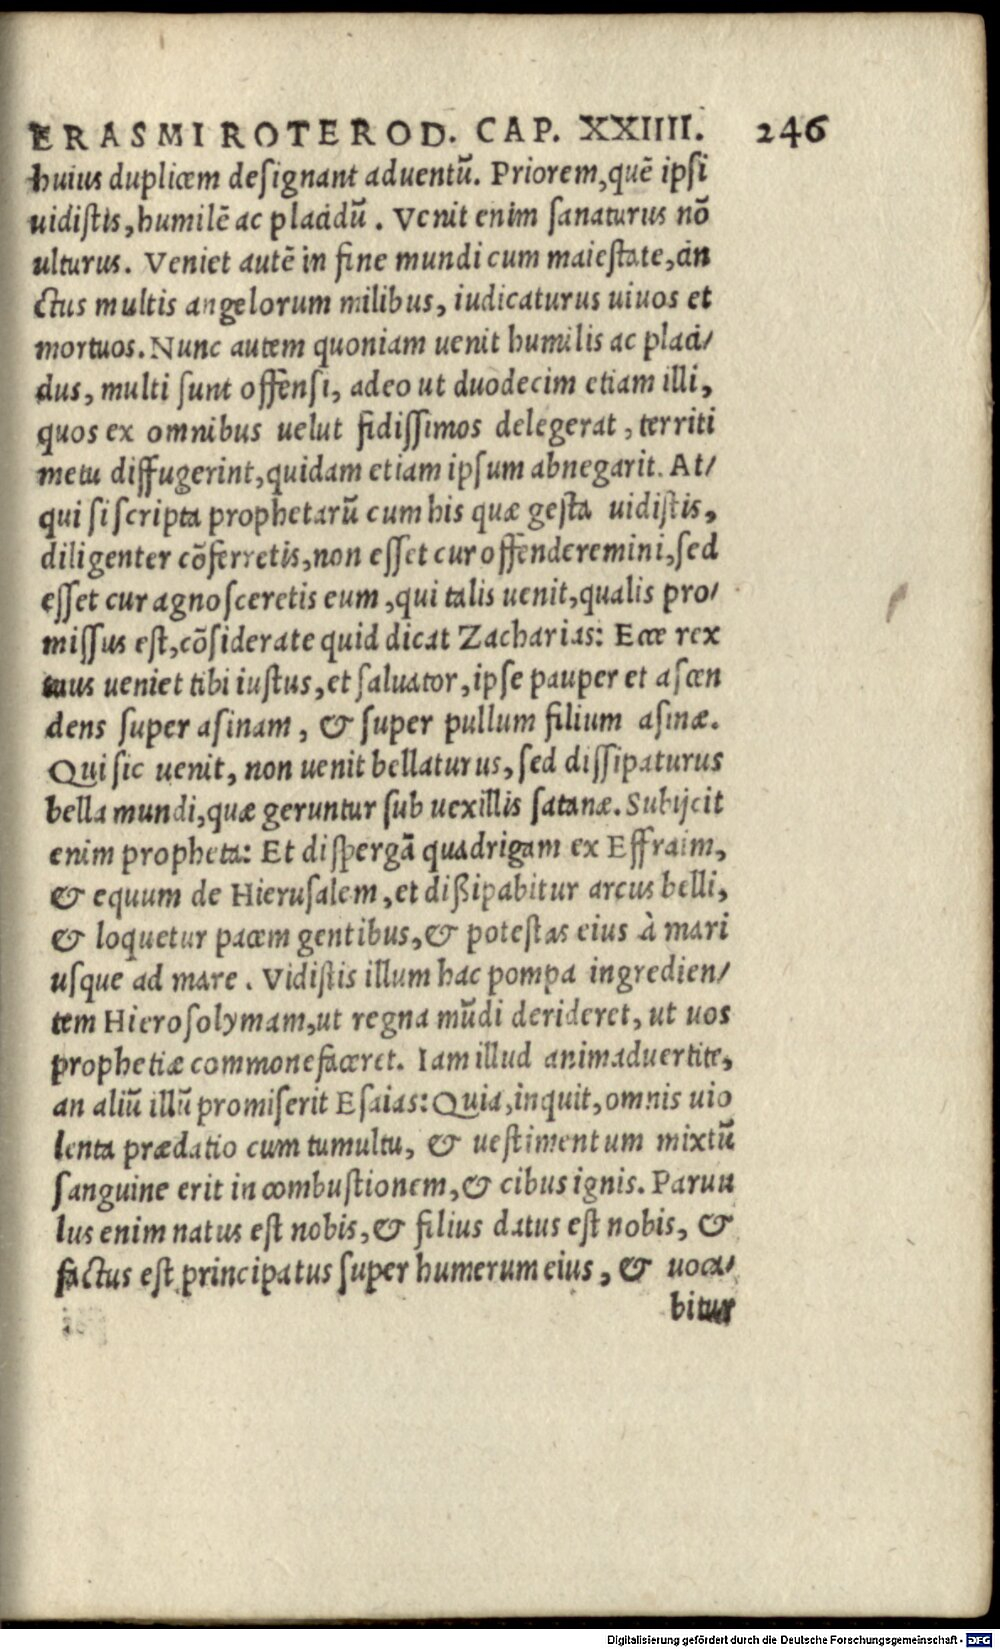 ERASMI ROTEROD. CAP. XXIIII. 246
huius duplicem designant aduentū. Priorem, quē ipsi
uidistis, humilē ac placidū. Venit enim sanaturus nō
ulturus. Veniet autē in fine mundi cum maiestate, cin
ctus multis angelorum milibus, iudicaturus uiuos et
mortuos. Nunc autem quoniam uenit humilis ac placi/
dus, multi sunt offensi, adeo ut duodecim etiam illi,
quos ex omnibus uelut fidissimos delegerat, territi
metu diffugerint, quidam etiam ipsum abnegarit. At/
qui si scripta prophetarū cum his quæ gesta uidistis,
diligenter cōferretis, non esset cur offenderemini, sed
esset cur agnosceretis eum, qui talis uenit, qualis pro/
missus est, cōsiderate quid dicat Zacharias: Ecce rex
tuus ueniet tibi iustus, et saluator, ipse pauper et ascen
dens super asinam, & super pullum filium asinæ.
Qui sic uenit, non uenit bellaturus, sed dissipaturus
bella mundi, quæ geruntur sub uexillis satanæ. Subijcit
enim propheta: Et dispergā quadrigam ex Effraim,
& equum de Hierusalem, et dißipabitur arcus belli,
& loquetur pacem gentibus, & potestas eius à mari
usque ad mare. Vidistis illum hac pompa ingredien/
tem Hierosolymam, ut regna mūdi derideret, ut uos
prophetiæ commonefaceret. Iam illud animaduertite,
an aliū illū promiserit Esaias: Quia, inquit, omnis uio
lenta prædatio cum tumultu, & uestimentum mixtū
sanguine erit in combustionem, & cibus ignis. Paruu
lus enim natus est nobis, & filius datus est nobis, &
factus est principatus super humerum eius, & uoca/
bitur
Digitalisierung gefördert durch die Deutsche Forschungsgemeinschaft - DFG